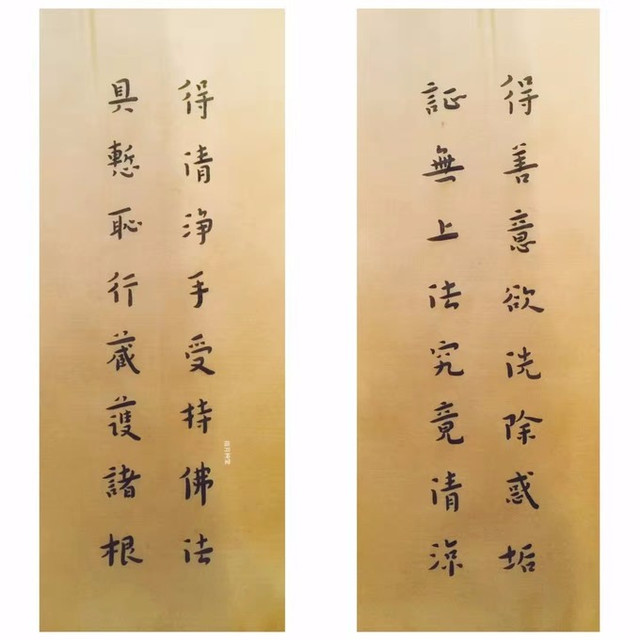 得善意欲洗除惑垢
証無上法究竟清涼
得清淨手受持佛法
具慙恥行藏護諸根